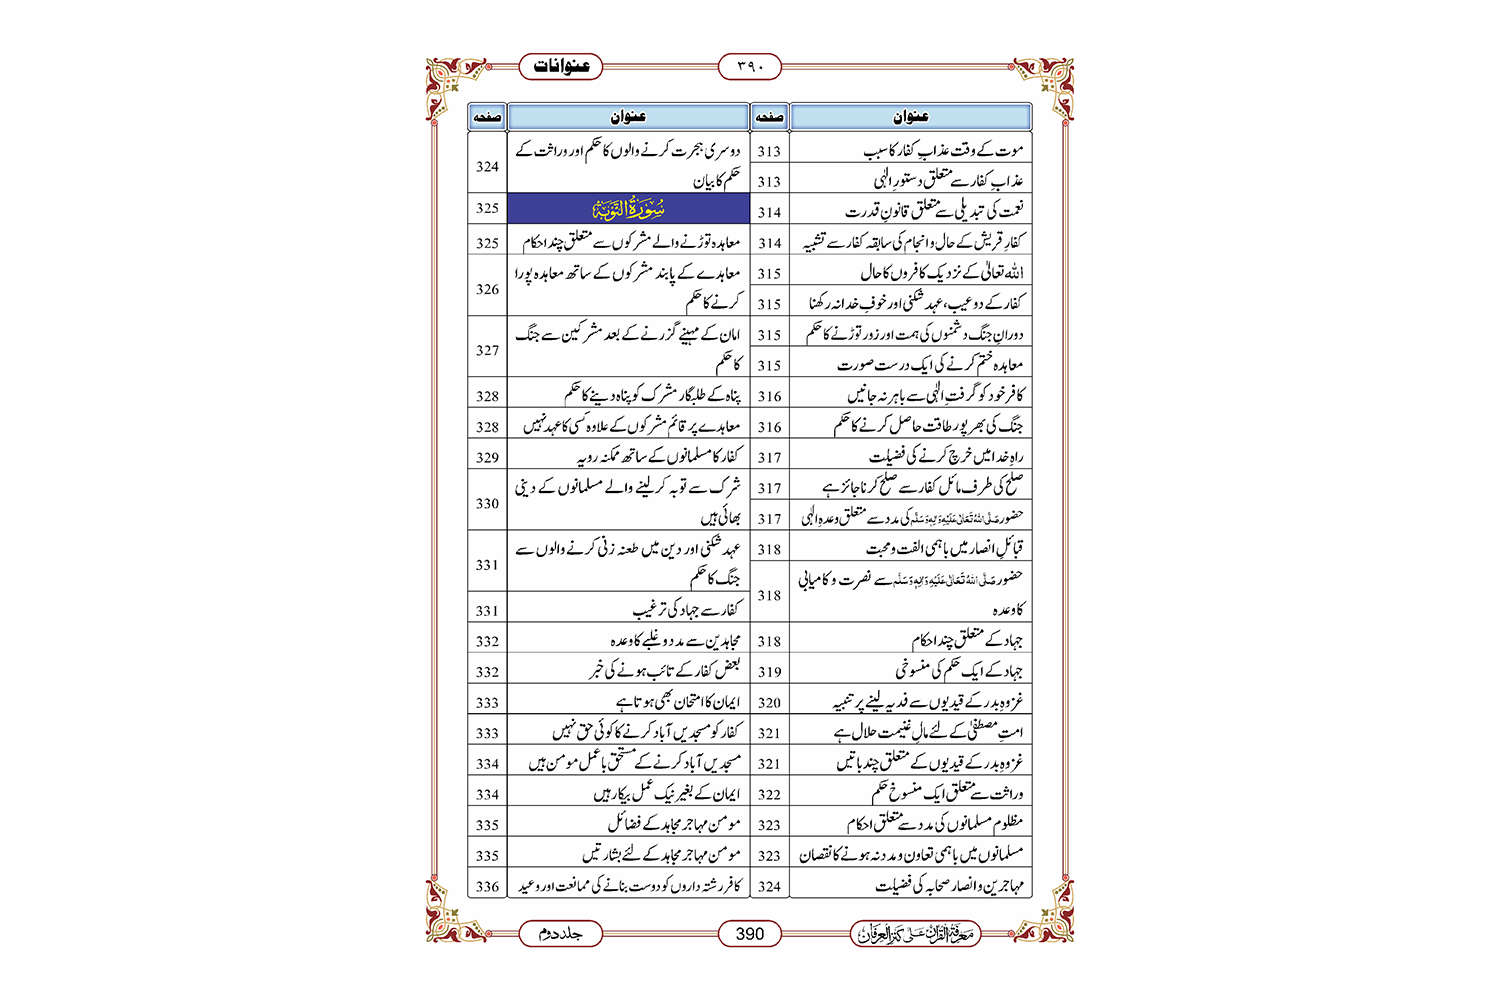 عنوانات
۳۹۰
عنوان صفحہ
موت کے وقت عذابِ کفار کا سبب 313
عذابِ کفار سے متعلق دستورِ الٰہی 313
نعمت کی تبدیلی سے متعلق قانونِ قدرت 314
کفارِ قریش کے حال و انجام کی سابقہ کفار سے تشبیہ 314
اللہ تعالیٰ کے نزدیک کافروں کا حال 315
کفار کے دو عیب، عہد شکنی اور خوفِ خدا نہ رکھنا 315
دورانِ جنگ دشمنوں کی ہمت اور زور توڑنے کا حکم 315
معاہدہ ختم کرنے کی ایک درست صورت 315
کافر خود کو گرفتِ الٰہی سے باہر نہ جانیں 316
جنگ کی بھرپور طاقت حاصل کرنے کا حکم 316
راہِ خدا میں خرچ کرنے کی فضیلت 317
صلح کی طرف مائل کفار سے صلح کرنا جائز ہے 317
حضور صَلَّی اللہُ تَعَالٰی عَلَیْہِ وَاٰلِہٖ وَسَلَّم کی مدد سے متعلق وعدۂ الٰہی 317
قبائلِ انصار میں باہمی الفت و محبت 318
حضور صَلَّی اللہُ تَعَالٰی عَلَیْہِ وَاٰلِہٖ وَسَلَّم سے نصرت و کامیابی
کا وعدہ 318
جہاد کے متعلق چند احکام 318
جہاد کے ایک حکم کی منسوخی 319
غزوۂ بدر کے قیدیوں سے فدیہ لینے پر تنبیہ 320
امتِ مصطفیٰ کے لئے مالِ غنیمت حلال ہے 321
غزوۂ بدر کے قیدیوں کے متعلق چند باتیں 321
وراثت سے متعلق ایک منسوخ حکم 322
مظلوم مسلمانوں کی مدد سے متعلق احکام 323
مسلمانوں میں باہمی تعاون و مدد نہ ہونے کا نقصان 323
مہاجرین و انصار صحابہ کی فضیلت 324
عنوان صفحہ
دوسری ہجرت کرنے والوں کا حکم اور وراثت کے
حکم کا بیان 324
سُوْرَۃُ التَّوْبَۃ 325
معاہدہ توڑنے والے مشرکوں سے متعلق چند احکام 325
معاہدے کے پابند مشرکوں کے ساتھ معاہدہ پورا
کرنے کا حکم 326
امان کے مہینے گزرنے کے بعد مشرکین سے جنگ
کا حکم 327
پناہ کے طلبگار مشرک کو پناہ دینے کا حکم 328
معاہدے پر قائم مشرکوں کے علاوہ کسی کا عہد نہیں 328
کفار کا مسلمانوں کے ساتھ ممکنہ رویہ 329
شرک سے توبہ کر لینے والے مسلمانوں کے دینی
بھائی ہیں 330
عہد شکنی اور دین میں طعنہ زنی کرنے والوں سے
جنگ کا حکم 331
کفار سے جہاد کی ترغیب 331
مجاہدین سے مدد و غلبے کا وعدہ 332
بعض کفار کے تائب ہونے کی خبر 332
ایمان کا امتحان بھی ہوتا ہے 333
کفار کو مسجدیں آباد کرنے کا کوئی حق نہیں 333
مسجدیں آباد کرنے کے مستحق باعمل مومن ہیں 334
ایمان کے بغیر نیک عمل بیکار ہیں 334
مومن مہاجر مجاہد کے فضائل 335
مومن مہاجر مجاہد کے لئے بشارتیں 335
کافر رشتہ داروں کو دوست بنانے کی ممانعت اور وعید 336
معرفۃ القرآن علیٰ کنز العرفان
390
جلد دوم